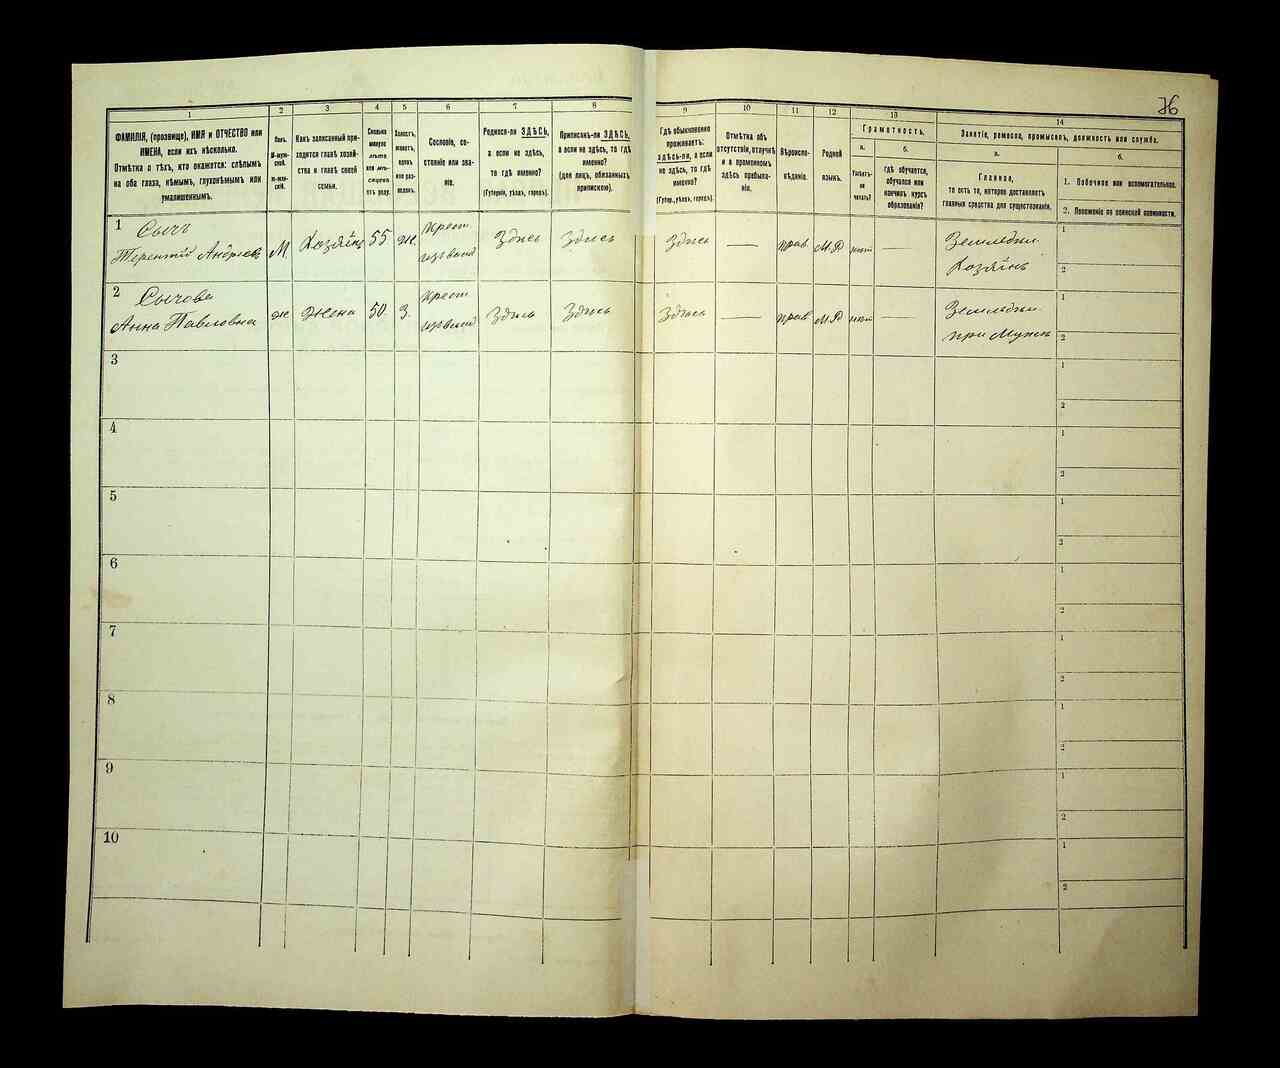 36
1
2
3
4
5
6
7
8
9
10
11
12
13
14
ФАМИЛІЯ, (прозвище), ИМЯ и ОТЧЕСТВО или
ИМЕНА, если ихъ нѣсколько.
Отмѣтка о тѣхъ, кто окажется: слѣпымъ
на оба глаза, нѣмымъ, глухонѣмымъ или
умалишеннымъ.
Полъ.
М-муж-
ской.
ж-жен-
скій.
Какъ записанный при-
ходится главѣ хозяй-
ства и главѣ своей
семьи.
Сколько
минуло
лѣтъ
или мѣ-
сяцевъ
отъ роду.
Холостъ,
женатъ,
вдовъ
или раз-
веденъ.
Сословіе, со-
стояніе или зва-
ніе.
Родился-ли ЗДѢСЬ,
а если не здѣсь,
то гдѣ именно?
(Губернія, уѣздъ, городъ).
Приписанъ-ли ЗДѢСЬ,
а если не здѣсь, то гдѣ
именно?
(для лицъ, обязанныхъ
припискою).
Гдѣ обыкновенно
проживаетъ:
здѣсь-ли, а если
не здѣсь, то гдѣ
именно?
(Губер., уѣздъ, городъ).
Отмѣтка объ
отсутствіи, отлучкѣ
и о временномъ
здѣсь пребыва-
ніи.
Вѣроиспо-
вѣданіе.
Родной
языкъ.
Грамотность.
а.
Умѣетъ-
ли
читать?
б.
Гдѣ обучается,
обучался или
кончилъ курсъ
образованія?
Занятіе, ремесло, промыселъ, должность или служба.
а.
Главное,
то есть то, которое доставляетъ
главныя средства для существованія.
б.
1. Побочное или вспомогательное.
2. Положеніе по воинской повинности.
1 Сычъ
Терентій Андреевъ М Хозяинъ 55 ж. Крест Здѣсь Здѣсь Здѣсь — прав М.Р нѣт — Земледѣл. Хозяинъ
1
2
2 Сычова
Анна Павловна ж Жена 50 З. Крест Здѣсь Здѣсь Здѣсь — прав М.Р нѣт — Земледѣл. при Мужѣ
1
2
3
1
2
4
1
2
5
1
2
6
1
2
7
1
2
8
1
2
9
1
2
10
1
2